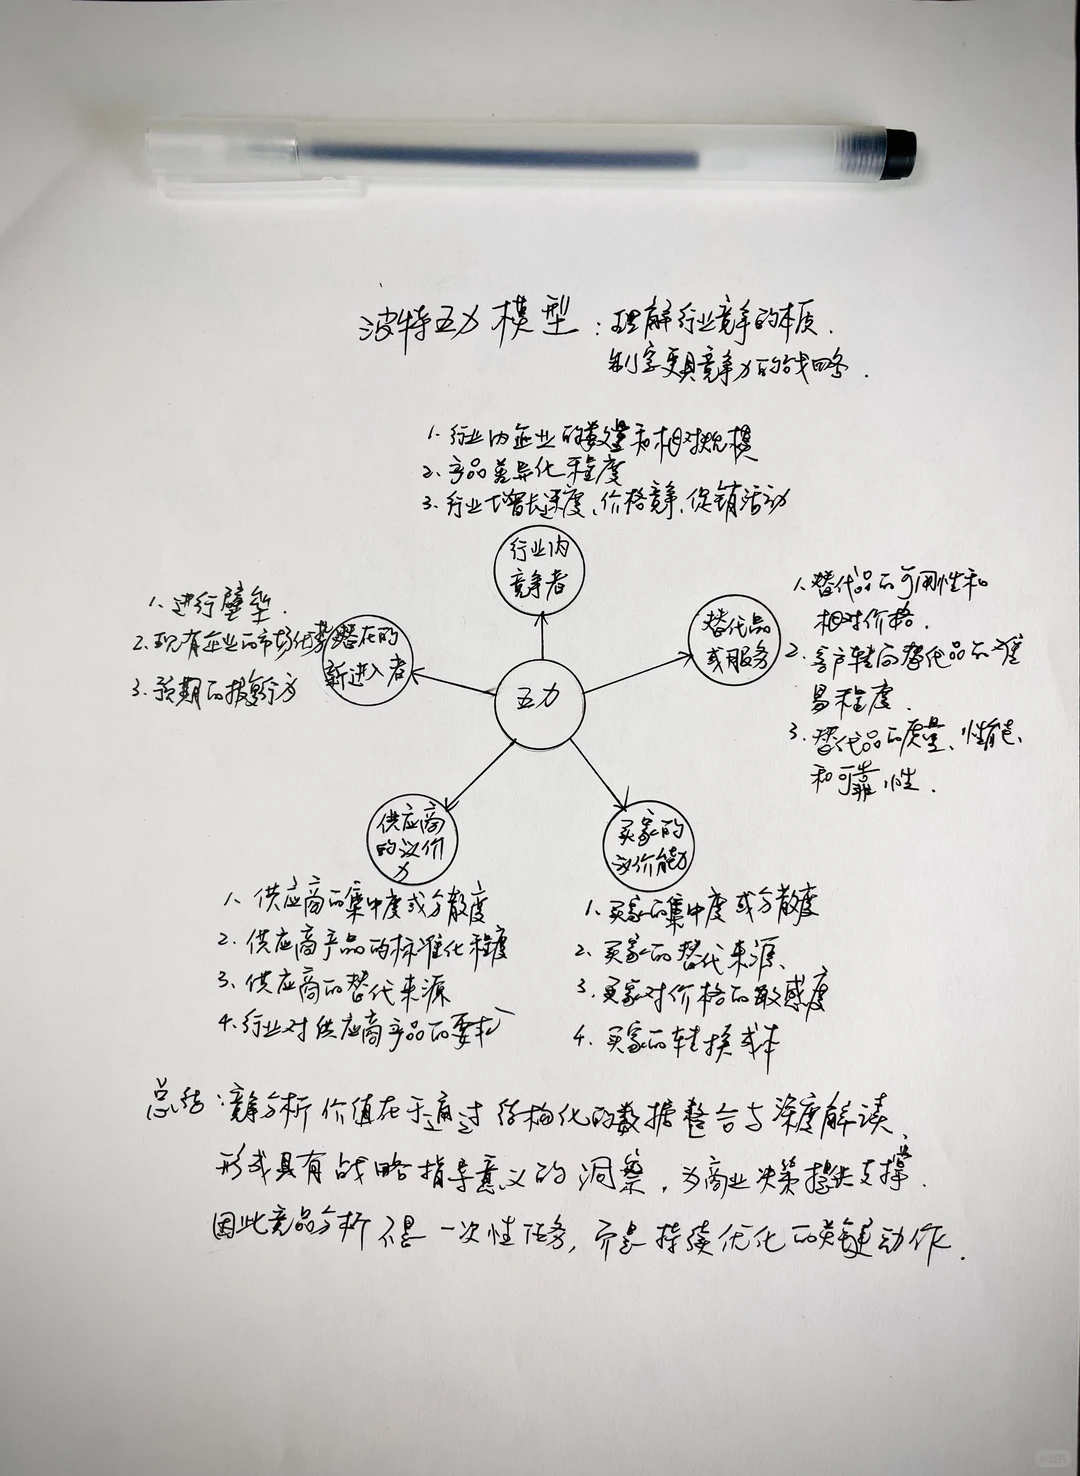 波特五力模型：理解行业竞争的本质.
制定更具竞争力的战略.
1. 行业内企业的数量和相对规模
2. 产品差异化程度
3. 行业增长速度、价格竞争、促销活动
行业内
竞争者
1. 进行壁垒.
2. 现有企业的市场优势
3. 预期的报复行为
潜在的
新进入者
替代品
或服务
1. 替代品的可用性和
相对价格.
2. 客户转向替代品的难
易程度.
3. 替代品的质量、性能、
和可靠性.
五力
供应商
的议价
力
买家的
议价能力
1. 供应商的集中度或分散度
2. 供应商产品的标准化程度
3. 供应商的替代来源
4. 行业对供应商产品的要求
1. 买家的集中度或分散度
2. 买家的替代来源、
3. 买家对价格的敏感度
4. 买家的转换成本
总结：竞争分析价值在于通过结构化的数据整合与深度解读、
形成具有战略指导意义的洞察，为商业决策提供支撑.
因此竞品分析不是一次性任务，而是持续优化的关键动作.